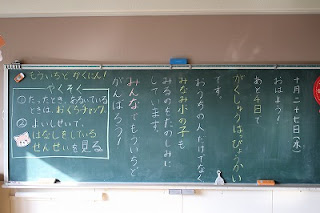 十月二十七日(水)
おはよう!
あと4日で
がくしゅうはっぴょうかい
です。
おうちの人だけでなく
みなみ小の子も
みるのをたのしみに
しています。
みんなでもういちど
がんばろう!
もういちどかくにん!
やくそく
①たったとき、あるいている
ときは、おくちチャック。
②よいしせいで、
はなしをしている
せんせいを見る